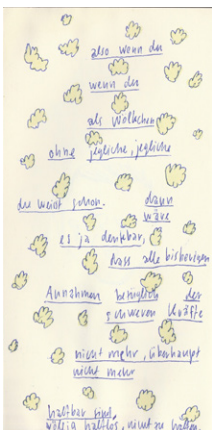 also wenn du
wenn du
als Wölkchen
ohne jegliche, jegliche
du weißt schon. dann
wäre
es ja denkbar,
dass alle bisherigen
Annahmen bezüglich der
schweren Kräfte
nicht mehr, überhaupt
nicht mehr
haltbar sind,
völlig haltlos, nicht zu halten